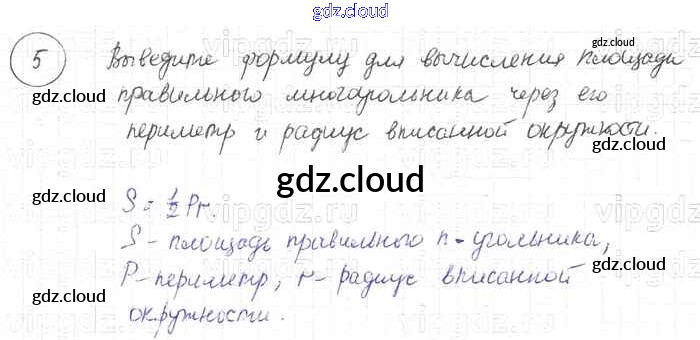 gdz.cloud
5 Выведите формулу для вычисления площади
gdz.cloud
правильного многоугольника через его
gdz.cloud gdz.cloud
периметр и радиус вписанной окружности.
gdz.cloud
gdz.cloud gdz.cloud
S = 1/2 Pr.
S - площадь правильного n-угольника,
gdz.cloud
P - периметр, r - радиус вписанной
gdz.cloud gdz.cloud
окружности.